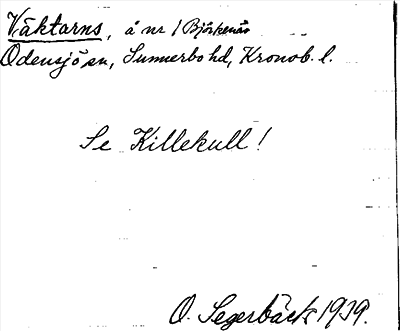 Väktarns, å nr 1 Björkenäs
Odensjö sn, Sunnerbo hd, Kronob. l.
Se Killekull!
O. Segerbäck 1939.